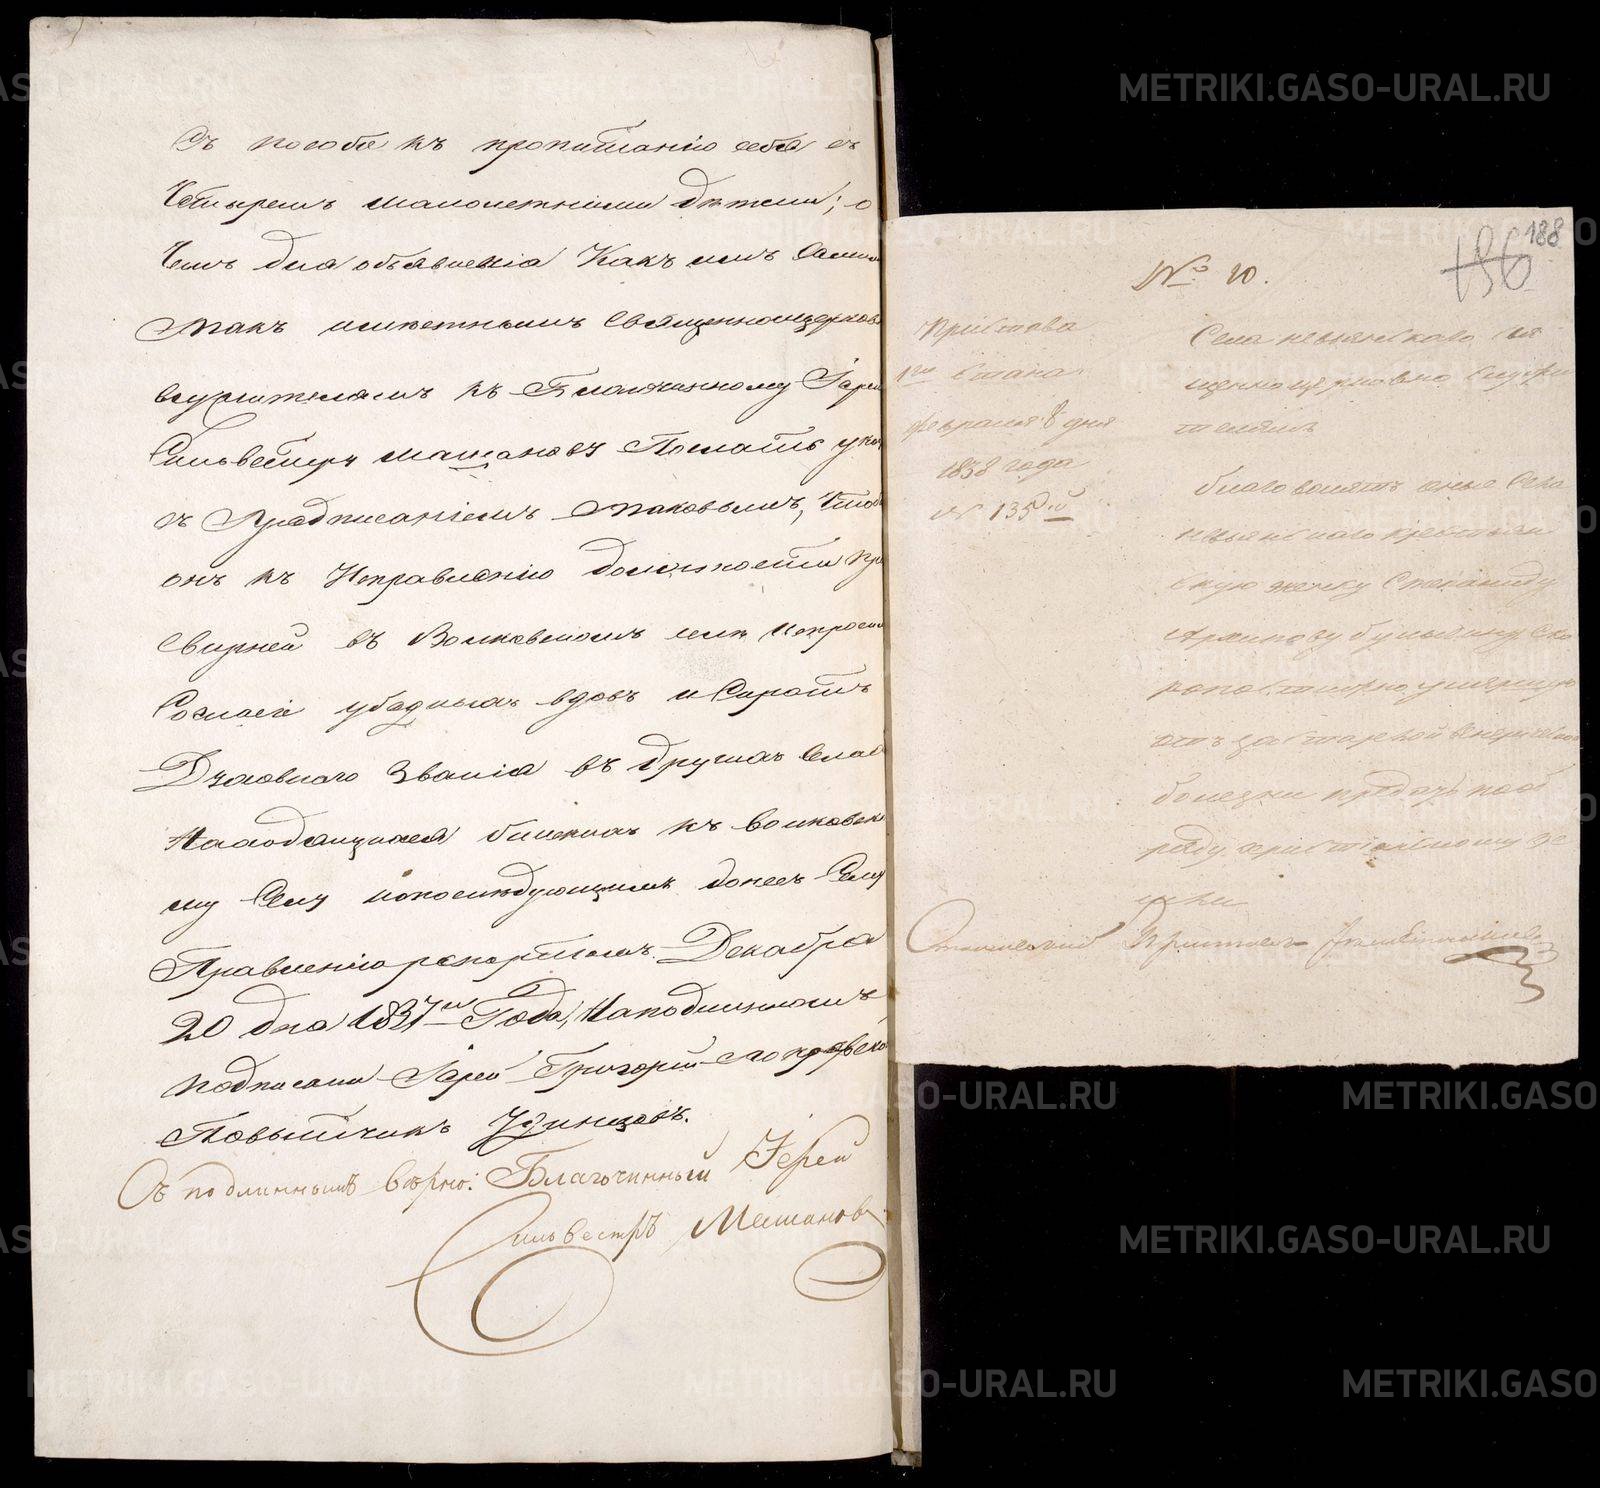 Съ пособіе къ пропитанію себя съ
Четыремъ малолетними дѣтьми; о
Чемъ для объявленія Какъ имъ Самим
такъ и имѣетнымъ Священноцерков
служителямъ къ Благочинному Іерею
Сильвестру Машанову Послать указ
съ Предписаніемъ таковымъ, Чтоб
онъ къ Исправленію должности Про
Свирней въ Волковскомъ селѣ испросил
Согласіе у бедныхъ вдовъ и Сиротъ
Духовнаго Званія въ другихъ Селах
Находящихся ближнихъ къ волковско
му Селу и о послѣдующимъ донесъ Сему
Правленію репортомъ Декабря
20 дня 1837го Года, На подлинномъ
подписали Іерей Григорій
Повытчикъ Удинцовъ.
Съ подлиннымъ вѣрно: Благочинный Іерей
Сильвестръ Машановъ
188
196
№ 10.
Пристава
1го Стана
февраля 8 дня
1838 года
№ 135й
Села невьянскаго свя
щенноцерковно служи
телямъ
благоволятъ оные Села
невьянскаго крестьян
скую женку Степаниду
Архипову скоропостижно умершую
отъ застарелой венерической
болезни предать по об
ряду христіанскому зе
мли
Становой Приставъ
METRIKI.GASO-URAL.RU